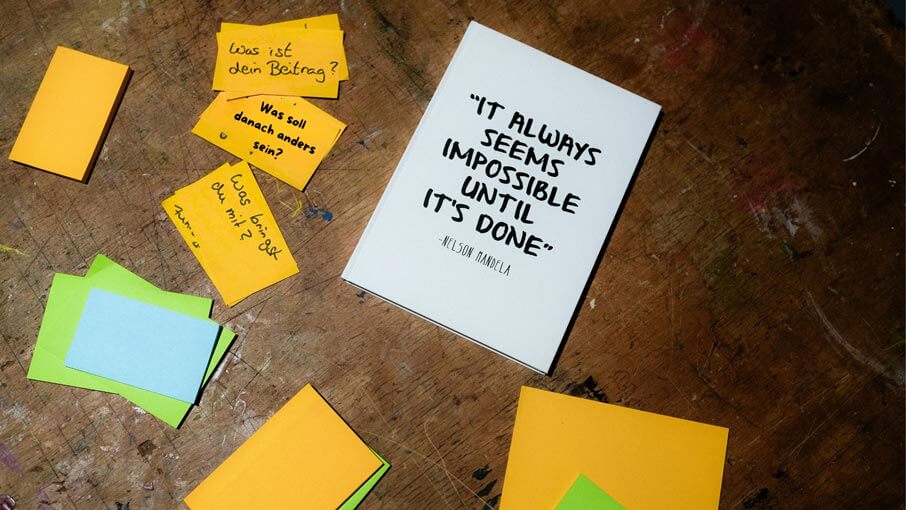 Was ist
dein Beitrag?
Was soll
danach anders
sein?
Was bringst
du mit?
"IT ALWAYS
SEEMS
IMPOSSIBLE
UNTIL
IT'S DONE"
-NELSON MANDELA